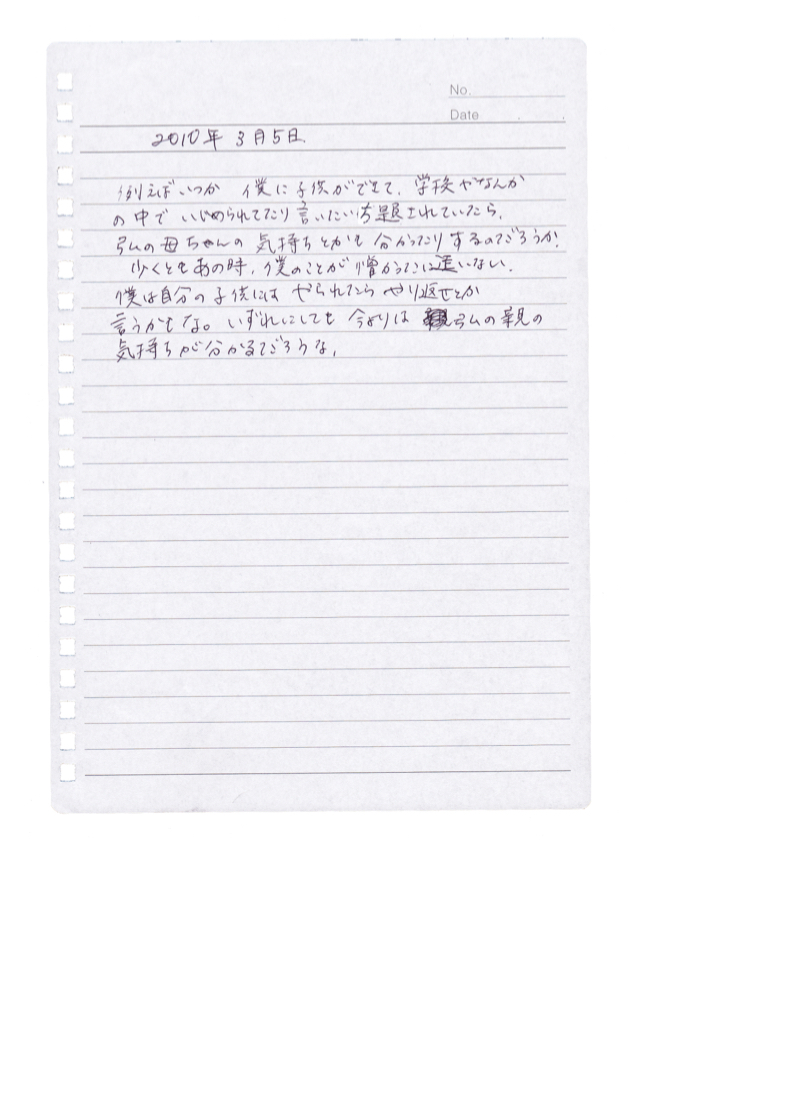 No.
Date . .
2010年 3月5日
例えばいつか 僕に子供ができて、学校やなんか
の中で いじめられてたり言いたい放題されていたら、
弘の母ちゃんの 気持ちとかも 分かったりするのだろうか?
少くともあの時、僕のことが憎かったに違いない。
僕は自分の子供には やられたら やり返せとか
言うかもな。いずれにしても 今よりは 弘の親の
気持ちが分かるだろうな。